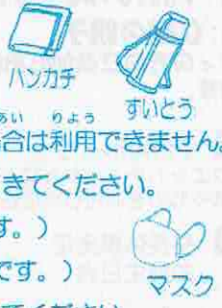 ハンカチ
すいとう
あい りよう
合は利用できません。
きてください。
す。)
です。)
マスク
てください